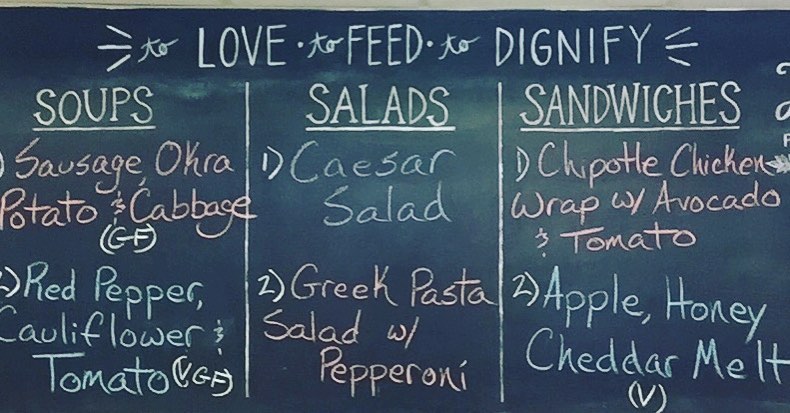 to LOVE · to FEED · to DIGNIFY
SOUPS
) Sausage, Okra
Potato & Cabbage
(GF)
2) Red Pepper,
Cauliflower &
Tomato (VGF)
SALADS
1) Caesar
Salad
2) Greek Pasta
Salad w/
Pepperoni
SANDWICHES
1) Chipotle Chicken
Wrap w/ Avocado
& Tomato
2) Apple, Honey
Cheddar Melt
(V)